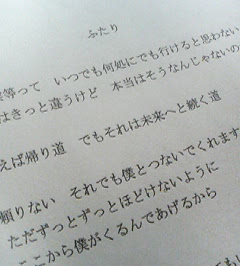 ふたり
等って　いつでも何処にでも行けると思わない
はきっと違うけど　本当はそうなんじゃないの
えば帰り道　でもそれは未来へと続く道
頼りない　それでも僕とつないでくれます
ただずっとずっとほどけないように
ここから僕がくるんであげるから